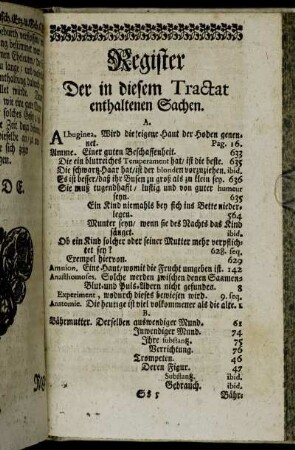 Register
Der in diesem Tractat
enthaltenen Sachen.
A.
ALbuginea. Wird die eigene Haut der Hoden genen-
net. Pag. 16.
Amme. Einer guten Beschaffenheit. 633
Die ein blutreiches Temperament hat/ ist die beste. 635
Die schwartz-Haar hat/ ist der blonden vorzuziehen. ibid.
Es ist besser/ daß ihr Busen zu groß als zu klein sey. 636
Sie muß tugendhafft/ lustig und von guter humeur
seyn. 635
Ein Kind niemahls bey sich ins Bette nieder-
legen. 564
Munter seyn/ wenn sie des Nachts das Kind
säuget. ibid.
Ob ein Kind solcher oder seiner Mutter mehr verpflich-
tet sey? 628. seq.
Exempel hiervon. 629
Amnion. Eine Haut/ womit die Feucht umgeben ist. 142
Anastomoses. Solche werden zwischen denen Saamens
Blut- und Puls-Adern nicht gefunden. 8
Experiment, wodurch dieses bewiesen wird. 9. seq.
Anatomie. Die heutige ist viel vollkommener als die alte. 1
B.
Bährmutter. Derselben auswendiger Mund. 61
Inwendiger Mund. 74
Ihre substantz. 75
Verrichtung. 76
Trompeten. 46
Deren Figur. 47
Substantz. ibid.
Gebrauch. ibid.
Ss 5 Bähr-